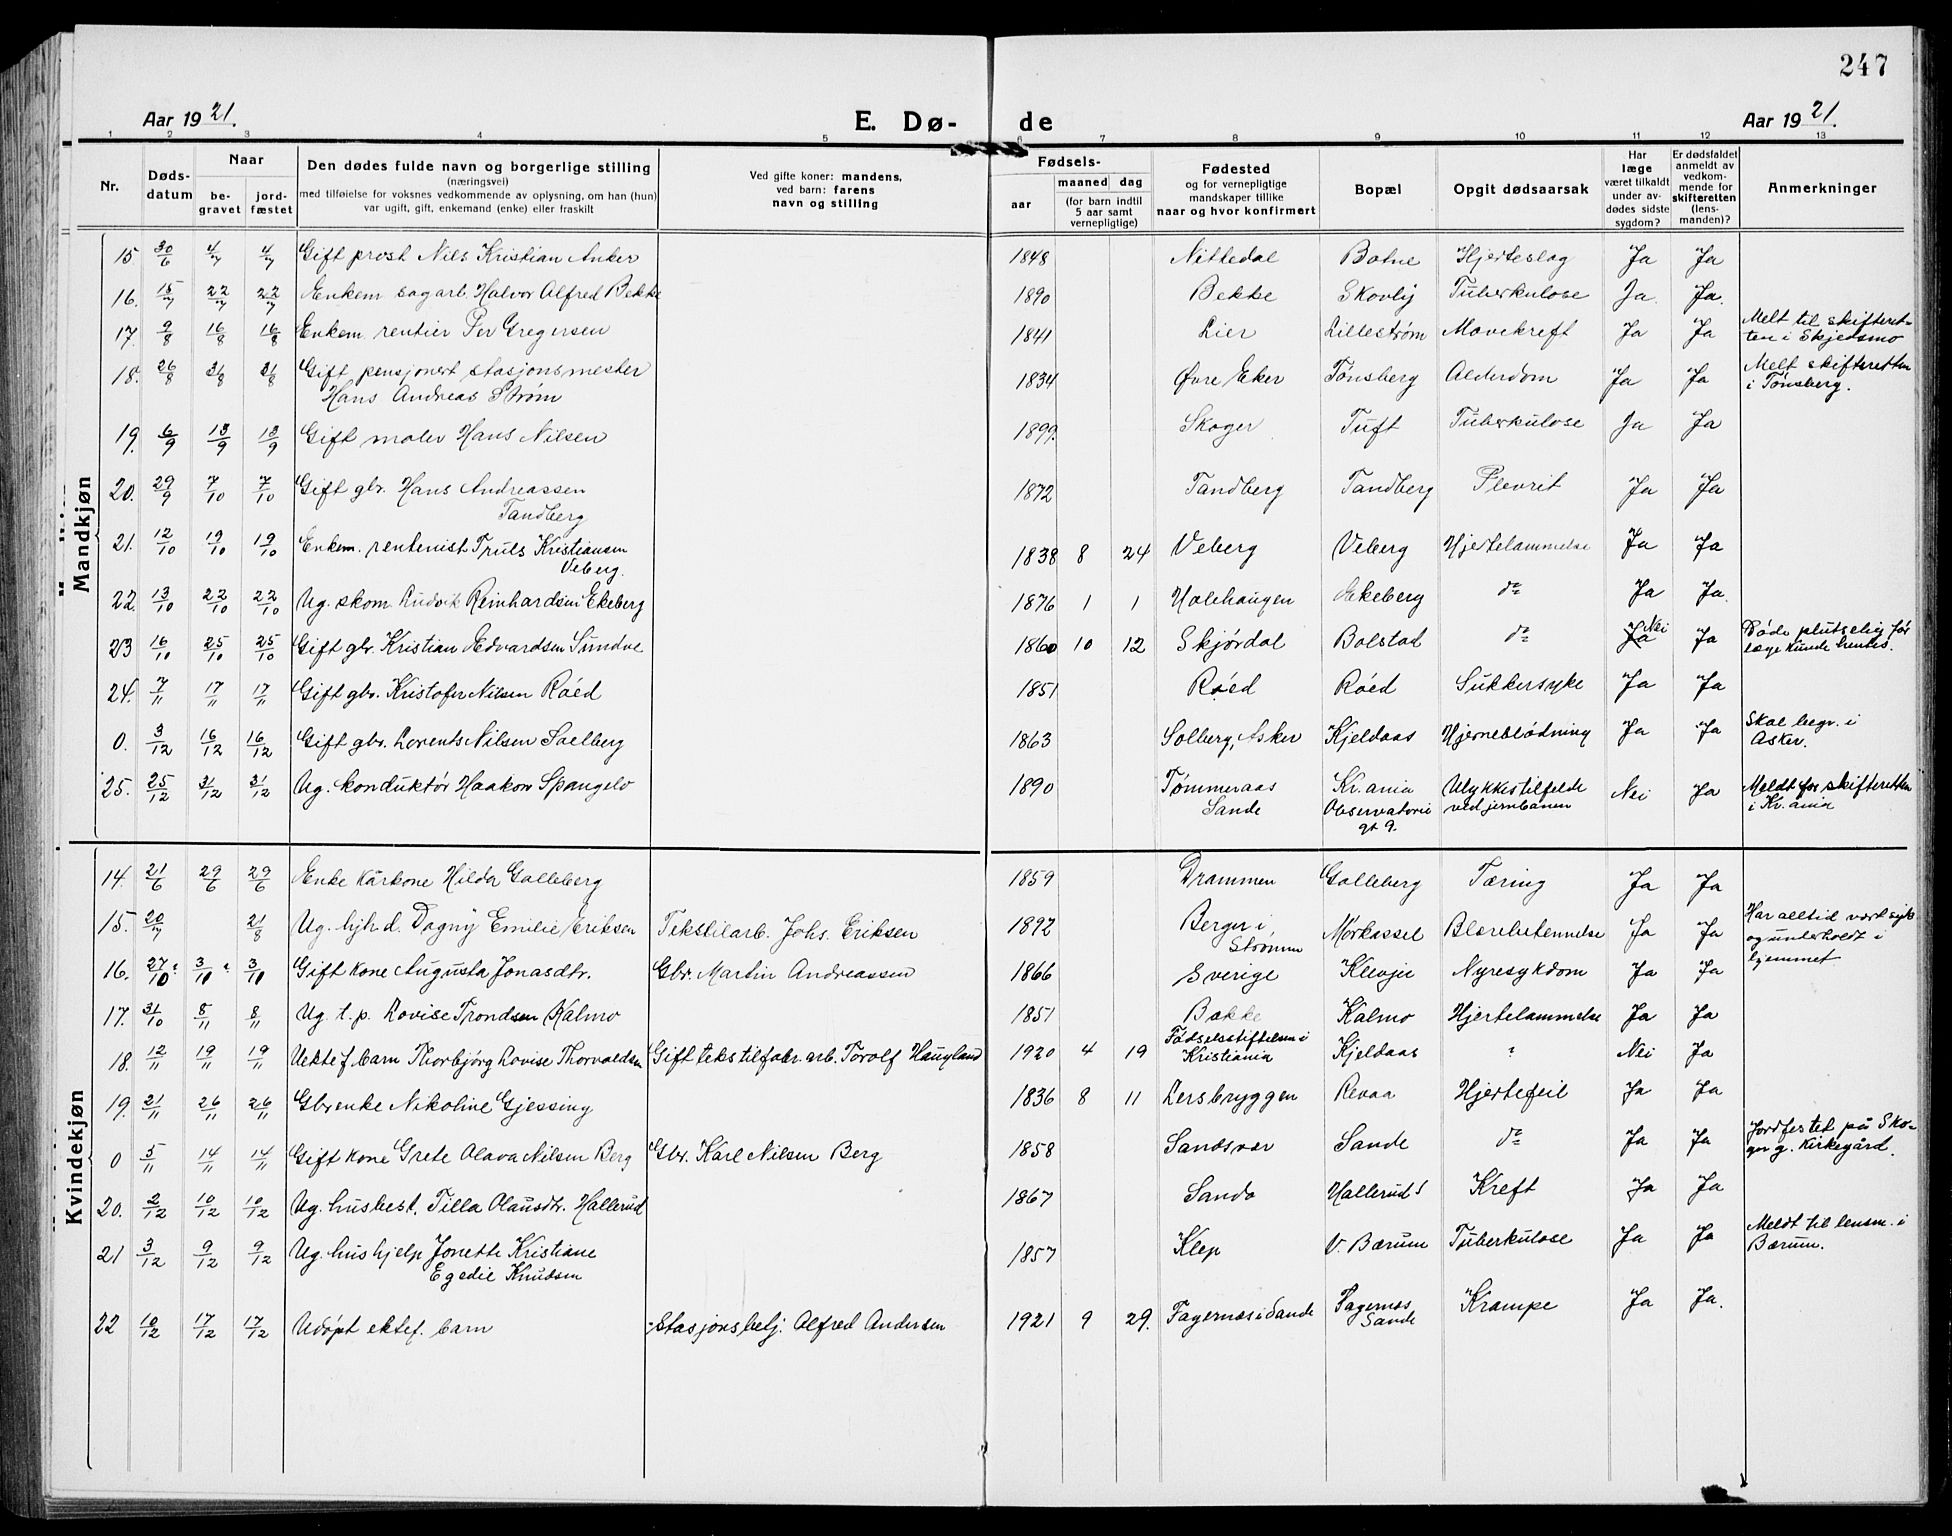 247
Aar 1921. E. Dø- de Aar 1921.
1 2 3 4 5 6 7 8 9 10 11 12 13
Nr. Døds-datum Naar be-gravet jord-fæstet Den dødes fulde navn og borgerlige stilling (næringsvei) med tilføielse for voksnes vedkommende av oplysning, om han (hun) var ugift, gift, enkemand (enke) eller fraskilt Ved gifte koner: mandens, ved barn: farens navn og stilling Fødsels- aar maaned dag (for barn indtil 5 aar samt vernepligtige) Fødested og for vernepligtige mandskaper tillike naar og hvor konfirmert Bopæl Opgit dødsaarsak Har læge været tilkaldt under av-dødes sidste sygdom? Er dødsfaldet anmeldt av vedkom-mende for skifteretten (lens-manden)? Anmerkninger
Mandkjøn
15. 30/6 4/7 4/7 Gift prost Nils Kristian Anker 1848 Nittedal Botne Hjerteslag Ja Ja
16. 15/7 22/7 22/7 Enkem. sagarb. Halvor Alfred Bekke 1890 Bekke Skovly Tuberkulose Ja. Ja.
17. 9/8 16/8 16/8 Enkem. rentier Per Gregersen 1841 Lier Lillestrøm Mavekreft Ja Ja Melt til skifteret-ten i Skjedsmo
18. 26/8 31/8 31/8 Gift pensjonert stasjonsmester 1834 Øvre Eker Tønsberg Alderdom Ja Ja Melt skifteretten i Tønsberg.
Hans Andreas Strøm
19. 6/9 13/9 13/9 Gift maler Hans Nilsen 1899. Skoger Tuft Tuberkulose Ja Ja
20. 29/9 7/10 7/10 Gift gbr. Hans Andreassen 1872 Tandberg Tandberg Plevrit Ja Ja
Tandberg
21. 12/10 19/10 19/10 Enkem. rentenist Truls Kristiansen 1838 8 24 Veberg Veberg Hjertelammelse Ja Ja
Veberg.
22. 13/10 22/10 22/10 Ug. skom. Ludvik Reinhardsen Ekeberg 1876 1 1 Holehaugen Ekeberg do Ja Ja.
23 16/10 25/10 25/10 Gift gbr. Kristian Edvardsen Sundve 1860 10 12 Skjørdal Bolstad do Ja Nei Ja Døde plutselig før læge kunde hentes.
24. 7/11 17/11 17/11 Gift gbr. Kristofer Nilsen Røed 1851 Røed Røed Sukkersyke Ja Ja
0. 3/12 16/12 16/12 Gift gbr. Lorents Nilsen Solberg 1863 Solberg, Asker Kjeldaas Hjerneblødning Ja Ja Skal begr. i Asker.
25. 25/12 31/12 31/12 Ug. konduktør Haakon Spangelo 1890 Tømmeraas Sande Kr.ania Observatorie gt 9. Ulykkestilfelde ved jernbanen Nei Ja Meldt for skifteretten i Kr.ania
Kvindekjøn
14. 21/6 29/6 29/6 Enke kårkone Hilda Galleberg 1859 Drammen Galleberg Tæring Ja Ja
15. 20/7 21/8 Ug. hjh.d. Dagny Emilie Eriksen Tekstilarb. Johs. Eriksen 1892 Berger i Strømm Mørkassel Blærebetennelse Ja Ja Har alltid vært syk og underholdt i hjemmet
16. 27/10 3/10 3/10 Gift kone Augusta Jonasdtr. Gbr. Martin Andreassen 1866 Sverige Klevjer Nyresykdom Ja Ja
17. 31/10 8/11 8/11 Ug. t.p. Lovise Trondsen Kalmo 1851 Bakke Kalmo Hjertelammelse Ja Ja
18. 12/11 19/11 19/11 Uektef barn Thorbjørg Lovise Thorvaldsen Gift tekstilfabr. arb. Torolf Haugland 1920 4 19 Fødselsstiftelsen i Kristiania Kjeldaas ? Nei Ja
19. 21/11 26/11 26/11 Gbrenke Nikoline Gjessing 1836 8 11 Lersbryggen Revaa Hjertefeil Ja Ja
0 5/11 14/11 14/11 Gift kone Grete Olava Nilsen Berg Gbr. Karl Nilsen Berg 1858 Sandsvær Sande do Ja Ja Jordfestet på Sko-ger g. Kirkegård.
20. 2/12 10/12 10/12 Ug. husbest. Tilla Olausdtr. Hallerud 1867 Sande Hallerud Kreft Ja Ja
21 3/12 9/12 9/12 Ug. hushjelp Jonette Kristiane 1857 Klep V. Bærum Tuberkulose Ja Ja Meldt til lensm. i Bærum.
Egedie Knudsen
22 10/12 17/12 17/12 Udøpt ektef. barn Stasjonsbetj. Alfred Andersen 1921 9 29. Fagernæs i Sande Fagernæs Sande Krampe Ja Ja.